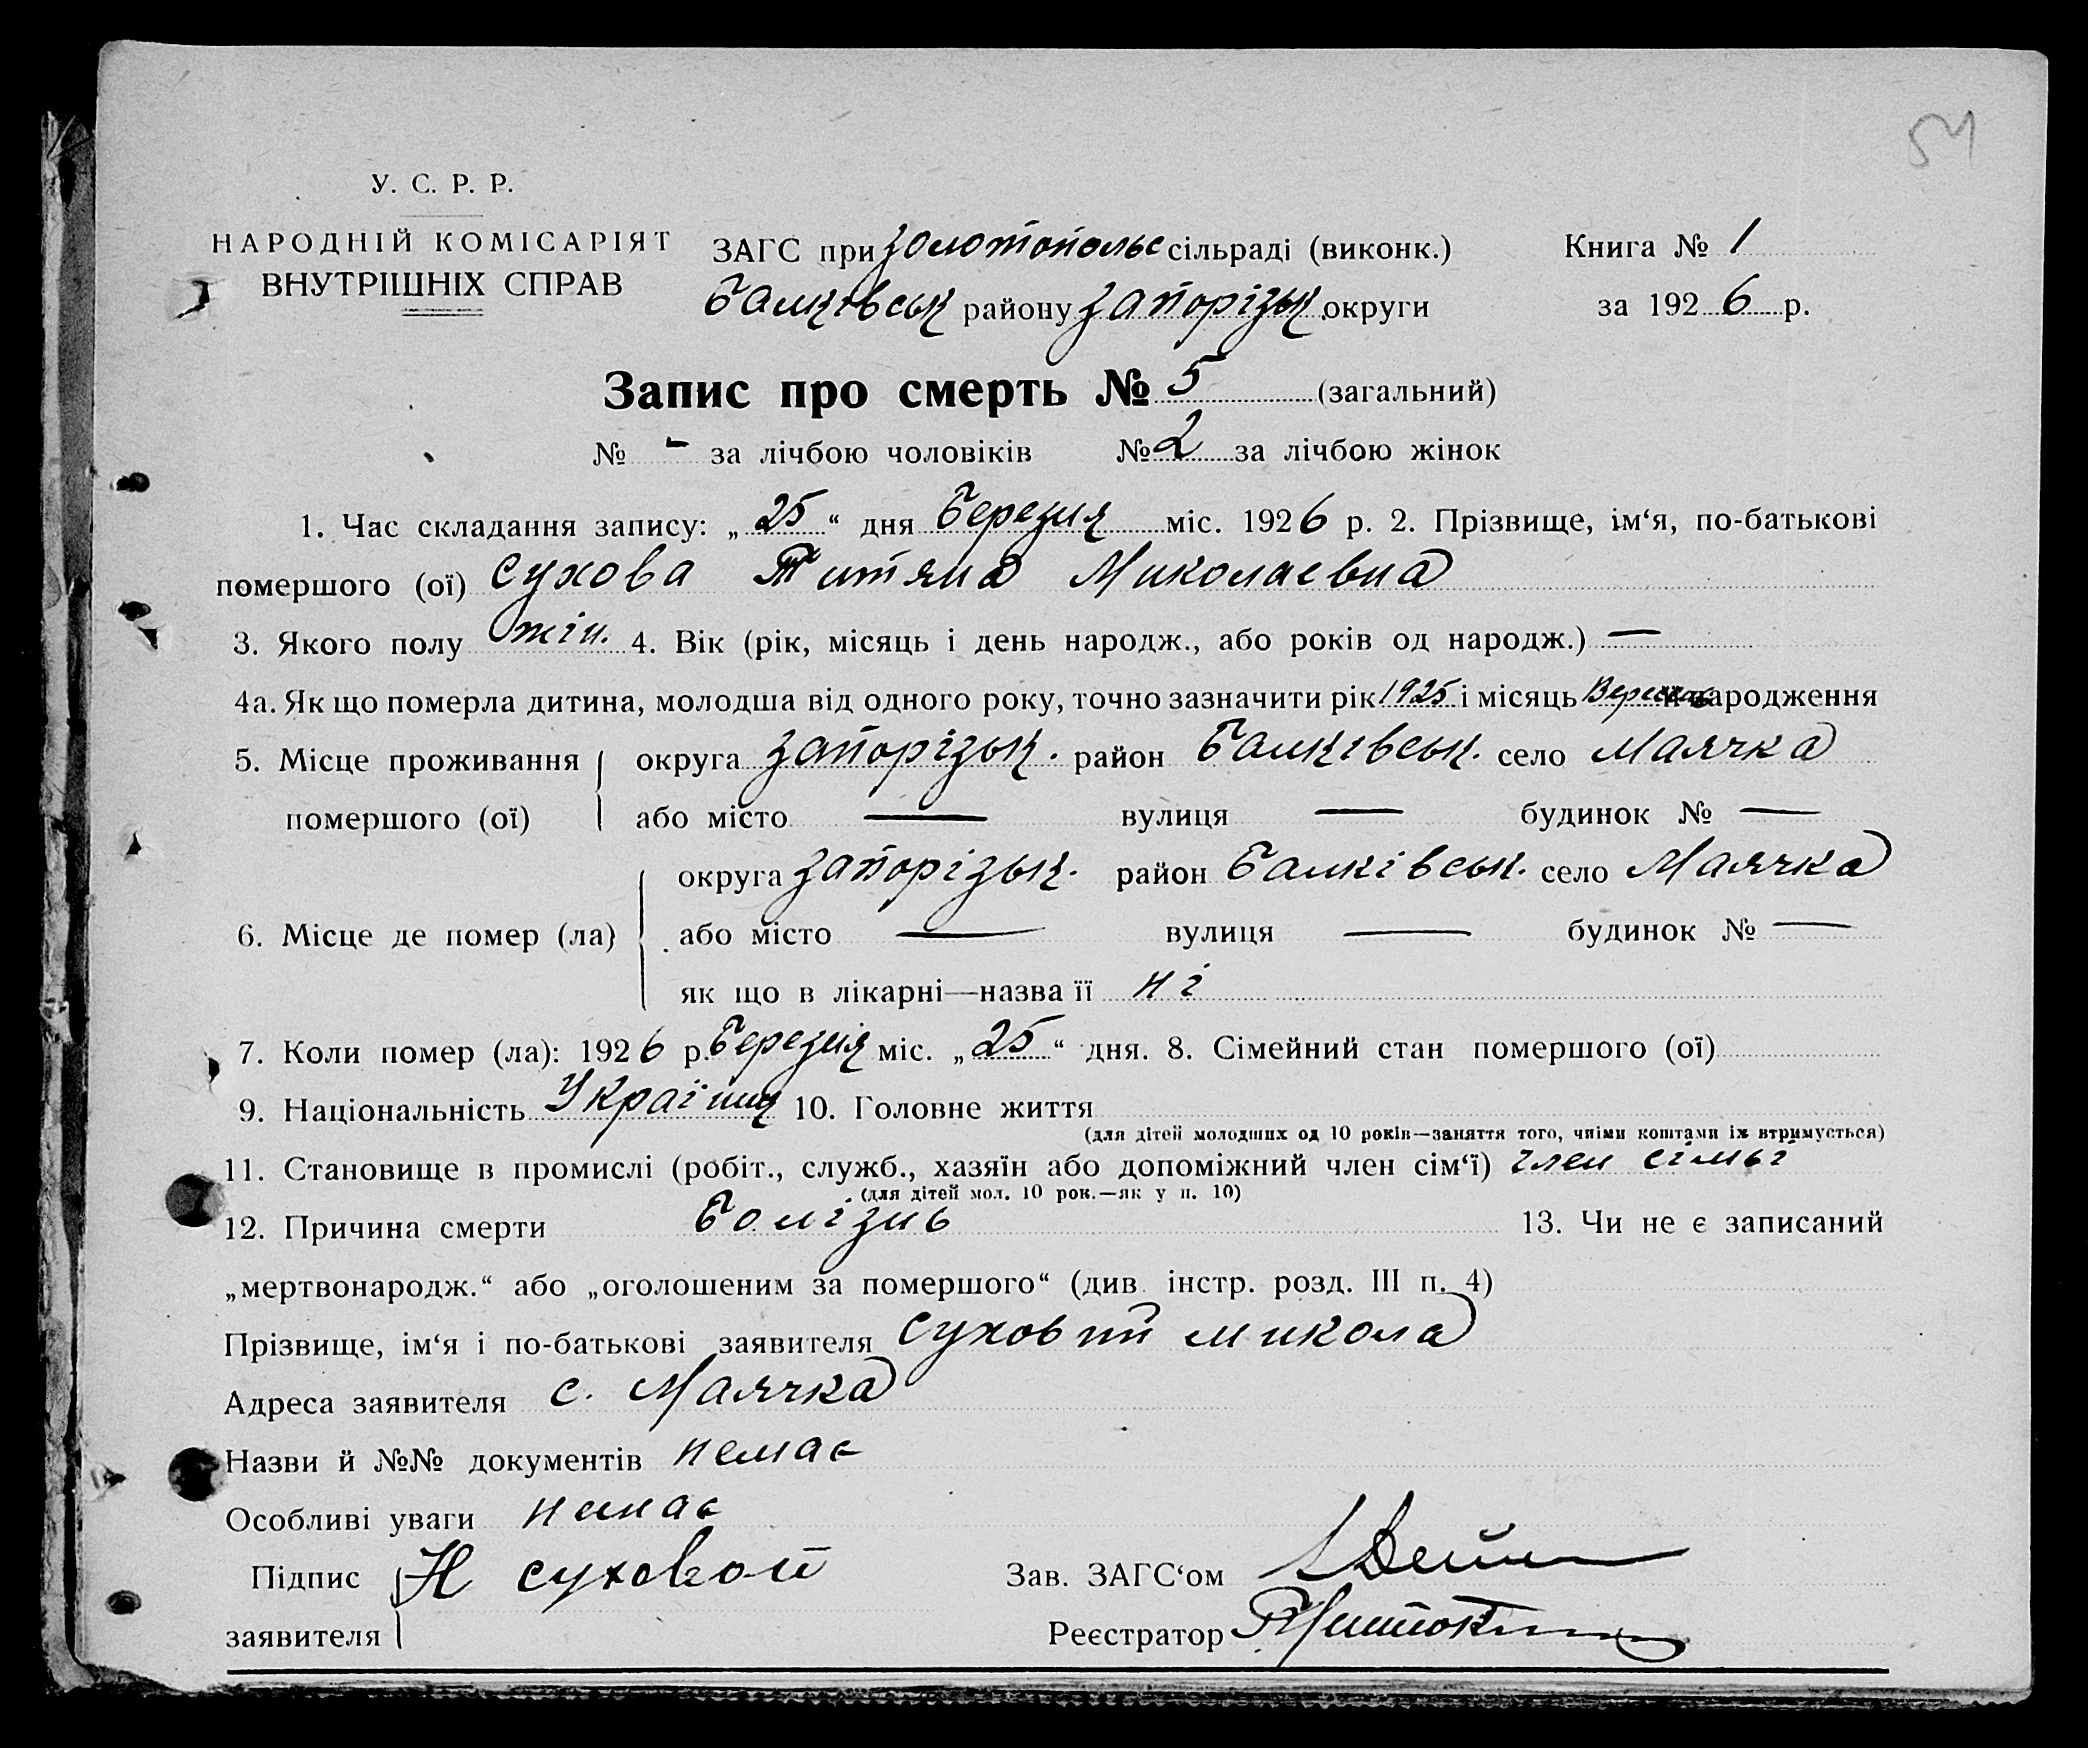 54
У. С. Р. Р.
НАРОДНІЙ КОМІСАРІЯТ
ВНУТРІШНІХ СПРАВ
ЗАГС при Золотопольс сільраді (виконк.)
Балківськ району Запорізьк округи
Книга № 1
за 1926 р.
Запис про смерть № 5 (загальний)
№ - за лічбою чоловіків № 2 за лічбою жінок
1. Час складання запису: „25“ дня Березня міс. 1926 р. 2. Прізвище, ім‘я, по-батькові
помершого (ої) Сухова Титяна Миколаевна
3. Якого полу жін. 4. Вік (рік, місяць і день народж., або років од народж.) —
4а. Як що померла дитина, молодша від одного року, точно зазначити рік 1925 і місяць народження
5. Місце проживання помершого (ої) округа Запорізьк. район Балківськ. село Маячка
або місто — вулиця — будинок № —
6. Місце де помер (ла) округа Запорізьк. район Балківськ. село Маячка
або місто — вулиця — будинок № —
як що в лікарні—назва її ні
7. Коли помер (ла): 1926 р. Березня міс. „25“ дня. 8. Сімейний стан помершого (ої)
9. Національність 10. Головне життя
(для дітей молодших од 10 років—заняття того, чиїми коштами їх втримується)
11. Становище в промислі (робіт., служб., хазяїн або допоміжний член сім‘ї) член сімьї
(для дітей мол. 10 рок.—як у п. 10)
12. Причина смерти Болізнь 13. Чи не є записаний
„мертвонародж.“ або „оголошеним за помершого“ (див. інстр. розд. III п. 4)
Прізвище, ім‘я і по-батькові заявителя Суховий Микола
Адреса заявителя с. Маячка
Назви й №№ документів немає
Особливі уваги немає
Підпис заявителя Н Суховой
Зав. ЗАГС‘ом
Реєстратор